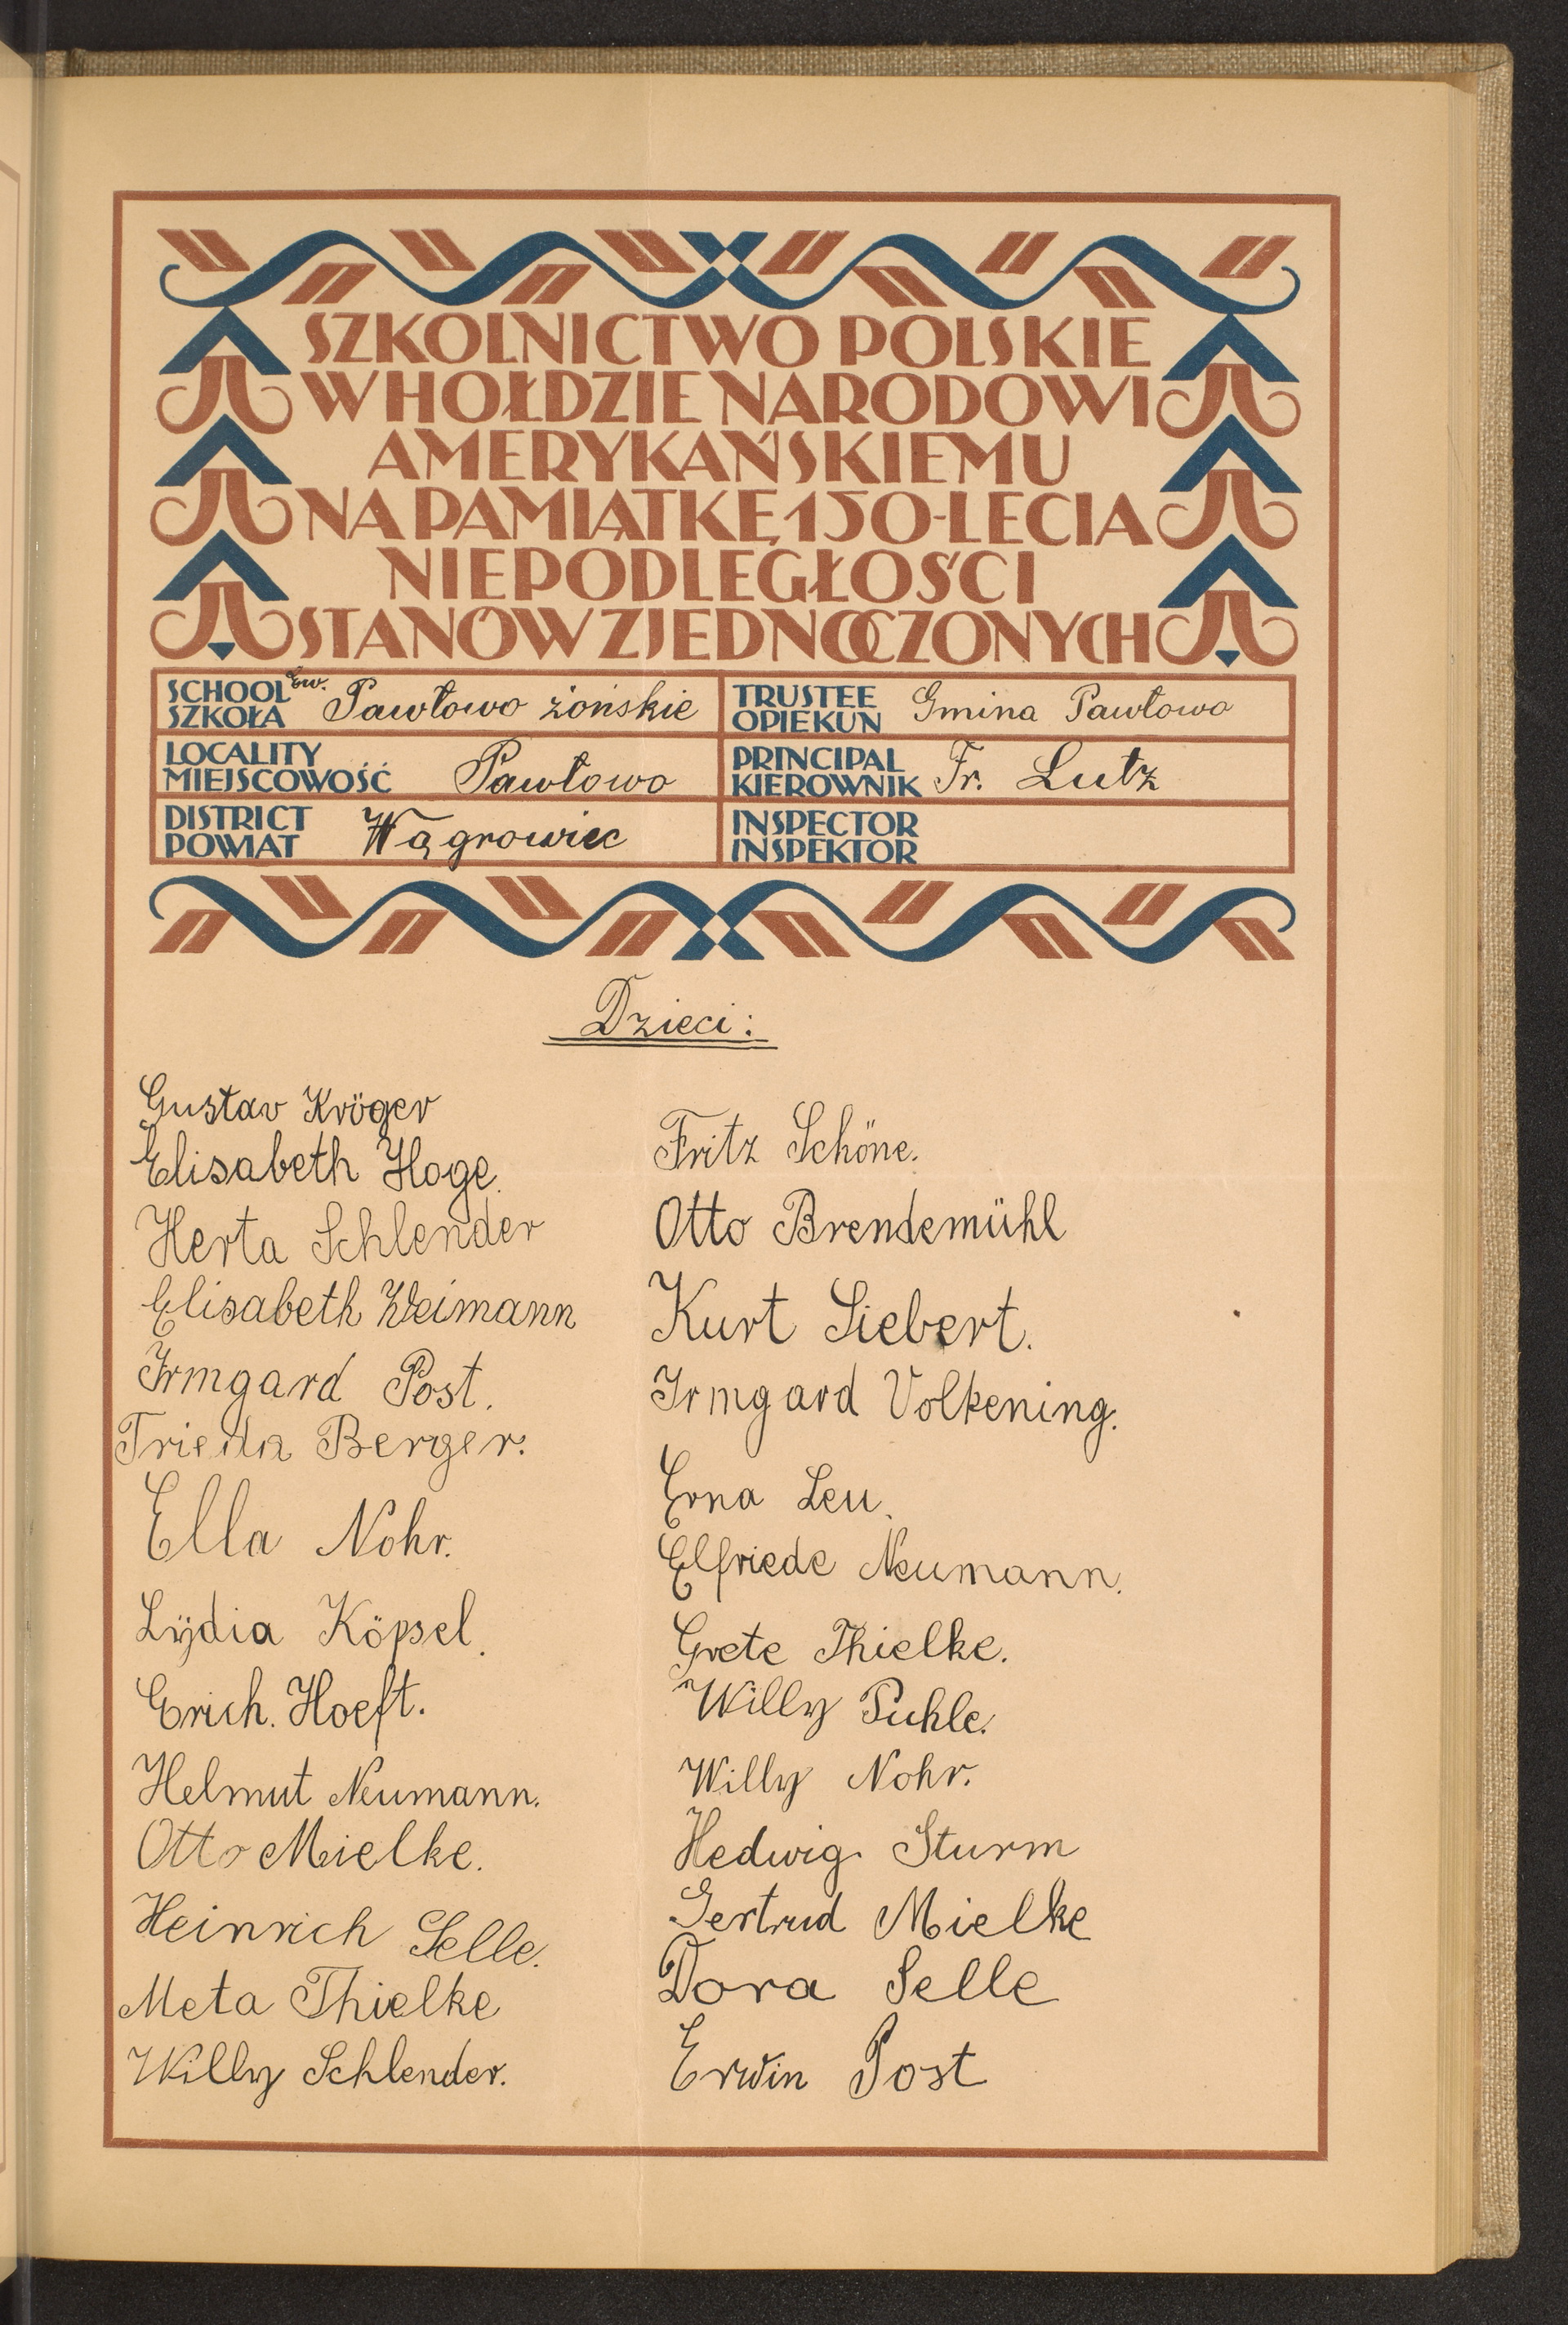 SZKOLNICTWO POLSKIE
W HOŁDZIE NARODOWI
AMERYKAŃSKIEMU
NA PAMIĄTKĘ 150-LECIA
NIEPODLEGŁOŚCI
STANÓW ZJEDNOCZONYCH
SCHOOL
SZKOŁA
ew. Pawłowo żońskie
TRUSTEE
OPIEKUN
Gmina Pawłowo
LOCALITY
MIEJSCOWOŚĆ
Pawłowo
PRINCIPAL
KIEROWNIK
Fr. Lutz
DISTRICT
POWIAT
Wągrowiec
INSPECTOR
INSPEKTOR
Dzieci:
Gustav Kröger
Elisabeth Hoge.
Herta Schlender
Elisabeth Weimann
Irmgard Post.
Frieda Berger.
Ella Nohr.
Lÿdia Köpsel.
Erich. Hoeft.
Helmut Neumann.
Otto Mielke.
Heinrich Selle.
Meta Thielke
Willy Schlender.
Fritz Schöne.
Otto Brendemühl
Kurt Siebert.
Irmgard Volkening.
Erna Leu.
Elfriede Neumann.
Grete Thielke.
Willy Puhle.
Willy Nohr.
Hedwig Sturm
Gertrud Mielke
Dora Selle
Erwin Post